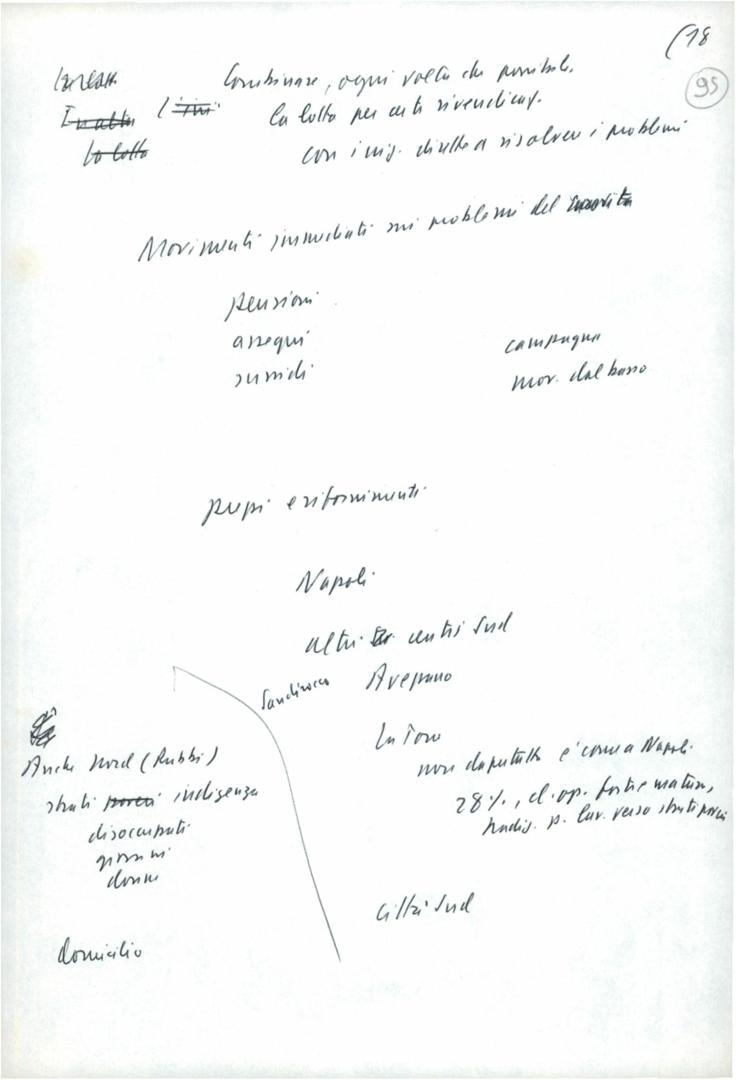 (18
95
Combinare, ogni volta che possibile,
la lotta per certe rivendicaz.
con iniz. dirette a risolvere i problemi
Movimenti immediati sui problemi del
pensioni
assegni
sussidi
campagna
mov. dal basso
prezzi e rifornimenti
Napoli
altri centri Sud
Sandirocco Avezzano
non daputtutto è come a Napoli
28%, cl. op. forte e matura,
tradiz. p. lav. verso strati poveri
Città Sud
Anche Nord (Rubbi)
strati poveri indigenza
disoccupati
giovani
donne
domicilio